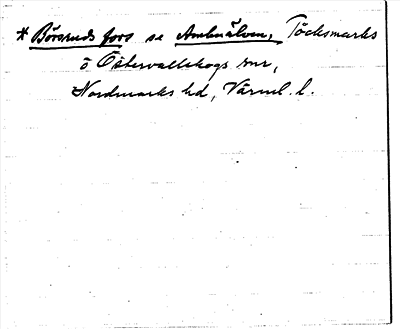 * Börsruds fors se Ambuälven, Töcksmarks
o Östervallskogs snr,
Nordmarks hd, Värml. l.